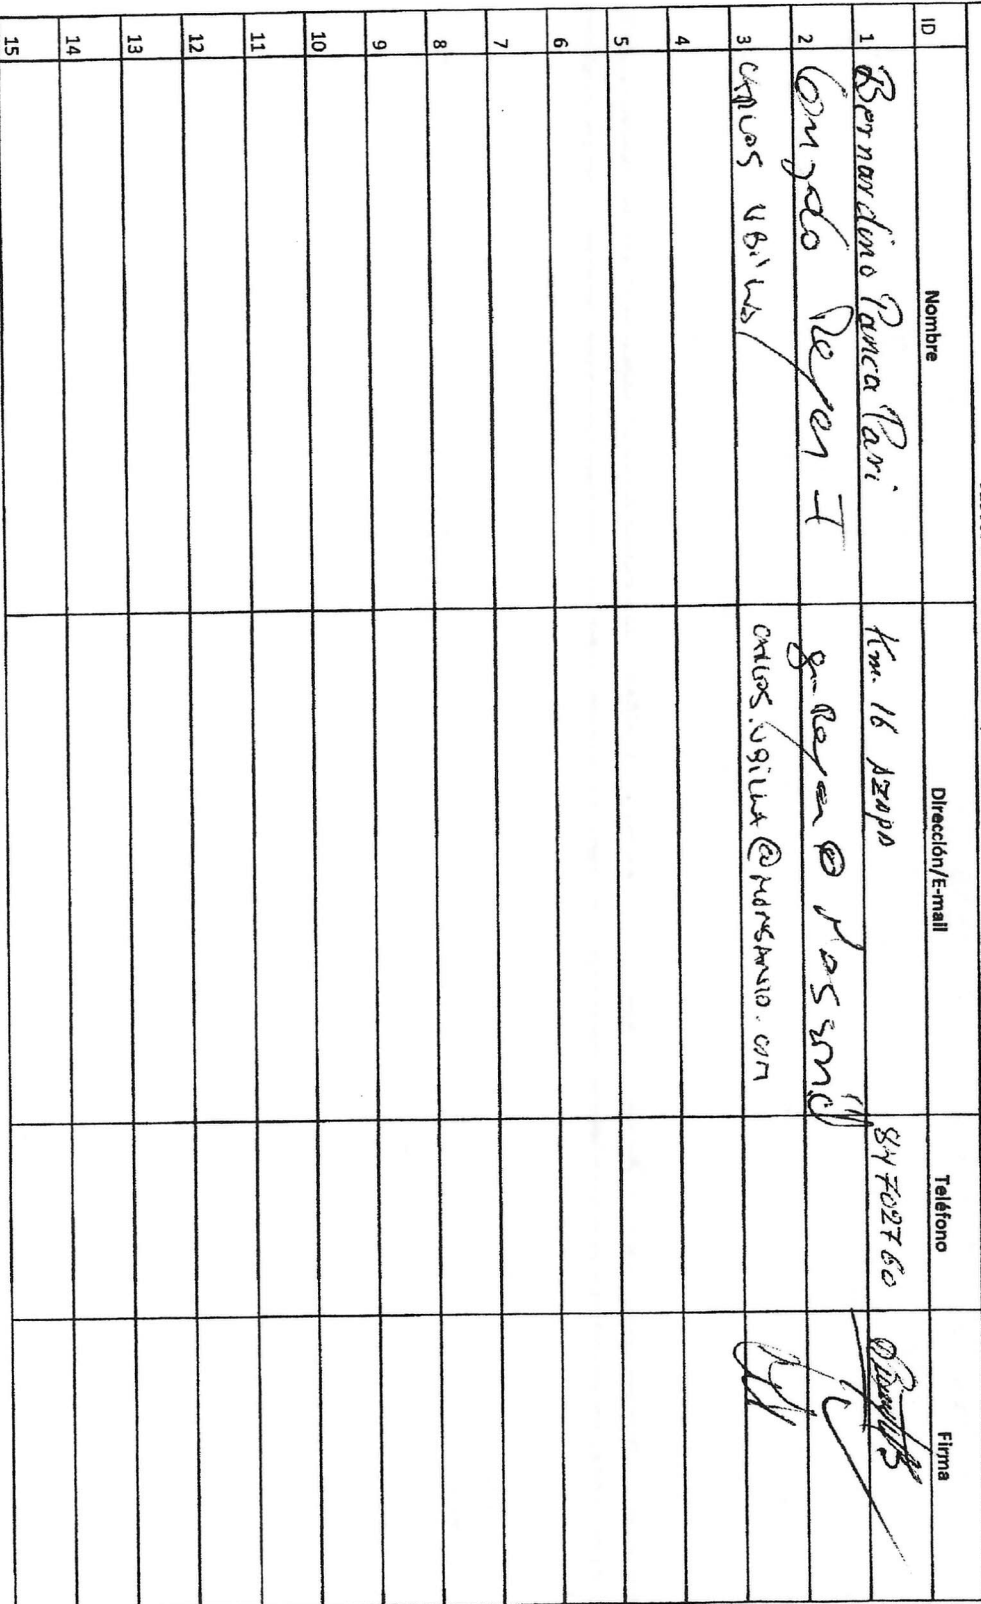 ID Nombre Dirección/E-mail Teléfono Firma
1 Bernardino Panca Pari Km. 16 AZAPA 84702760
2 Reyes
3 CARLOS UBILLA CARLOS.UBILLA@MONSANTO.COM
4
5
6
7
8
9
10
11
12
13
14
15